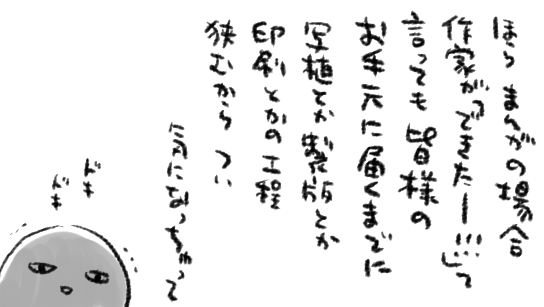 ほら まんがの場合
作家が「できたー!!!」って
言っても 皆様の
お手元に届くまでに
写植とか製版とか
印刷とかの工程
狭むから つい
気になっちゃって
ドキ
ドキ